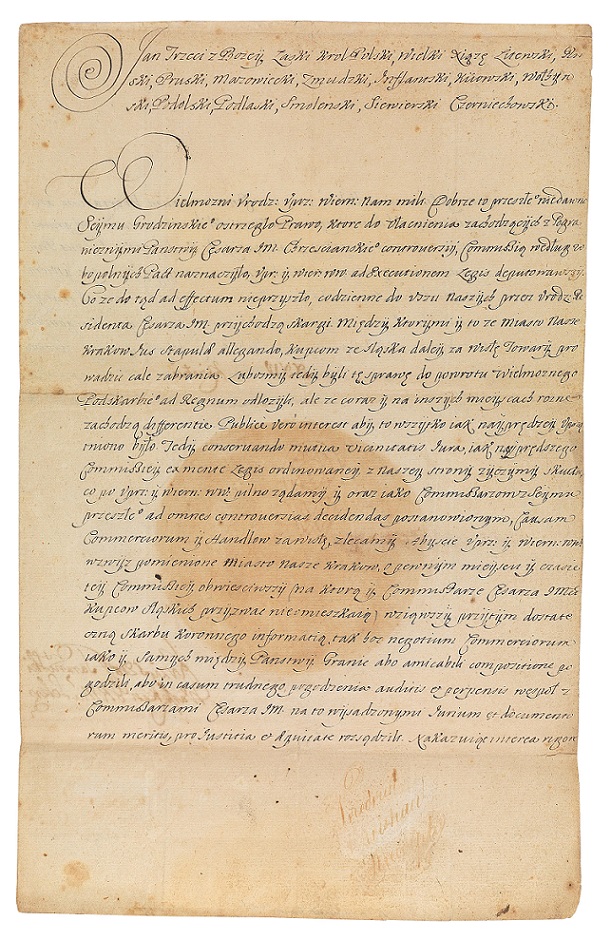 Jan Trzeci z Bożey Łaski Krol Polski, Wielki Xiążę Litewski, Rus-
ski, Pruski, Mazowiecki, Zmudzki, Inflantski, Kiiowski, Wołyń-
ski, Podolski, Podlaski, Smolenski, Siewierski Czerniechowski.
Wielmożni Vrodz: Vprz: wiern: Nam mili. Dobrze to przeszłe° niedawno
Seijmu Grodzinskie° ostrzegło Prawo, ktore do vłacnienia zachodzących z Pogra
nicznymi Panstwy Cesarza JM. Chrzescianskie° controversiy, Commissią według
spolnych Pact naznaczyło, Vpr: y wier: ww. ad Executionem Legis deputowawszy.
Co że do tąd ad effectum nieprzyszło, codzienne do Vszu Naszych przez Vrodz: Re
sidenta Cesarza JM. przychodzą skargi. Między ktorymi y to że Miasto Nasze
Krakow Jus Stapulæ allegando, Kupcom ze Sląska daley za Wisłę Towary pro
wadzić cale zabrania. Lubosmy tedy byli tę sprawę do powrotu Wielmożnego
Podskarbie° ad Regnum odłożyli, ale że coraz y na inszych mieyscach rożne
zachodzą differentie Publici vero interest aby to wszytko iak nayprędzey vprząt
niono było. Tedy conservando mutua vicinitatis Jura, iak nayprędszego
Commissiey ex mente Legis ordinowaney, z naszey strony życzymy skutku
co po Vprz: y wiern: ww. pilno żądamy y oraz iako Commissarzom z Seymu
przeszłe° ad omnes controversias decidendas postanowionym, Causam
Commerciorum y Handlow za Wisłę, zlecamy. Abyscie Vprz: y wiern: ww.
wzwysz pomienione Miasto Nasze Krakow, o pewnym mieyscu y czasie
teyże Commissiey, obwiesciwszy (na ktorą y Commissarze Cesarza JMci
Kupcow Sląskich przyzwać nie mieszkaią) wziąwszy przytym dostate
czną Skarbu Koronnego informatią, tak hoc negotium Commerciorum
iako y Samych między Panstwy Granic abo amicabili compositione po
godzili, abo in casum trudnego pogodzenia auditis et perpensis wespoł z
Commissarzami Cesarza JM. na to wysadzonymi Jurium et documento
rum meritis, pro Justitia et Æquitate rozsądzili. Nakazuiąc interea rigore